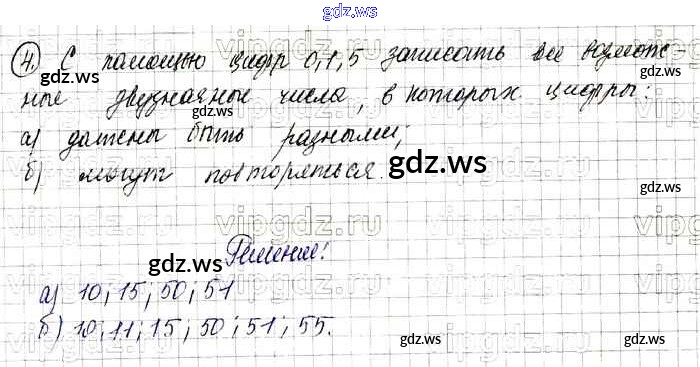 gdz.ws
4. С помощью цифр 0,1,5 записать все возмож-
ные двузначные числа, в которых цифры:
а) должны быть разными;
б) могут повторяться.
gdz.ws
gdz.ws
gdz.ws
gdz.ws
Решение:
gdz.ws
а) 10; 15; 50; 51
б) 10; 11; 15; 50; 51; 55.
gdz.ws
gdz.ws
vipgdz.ru